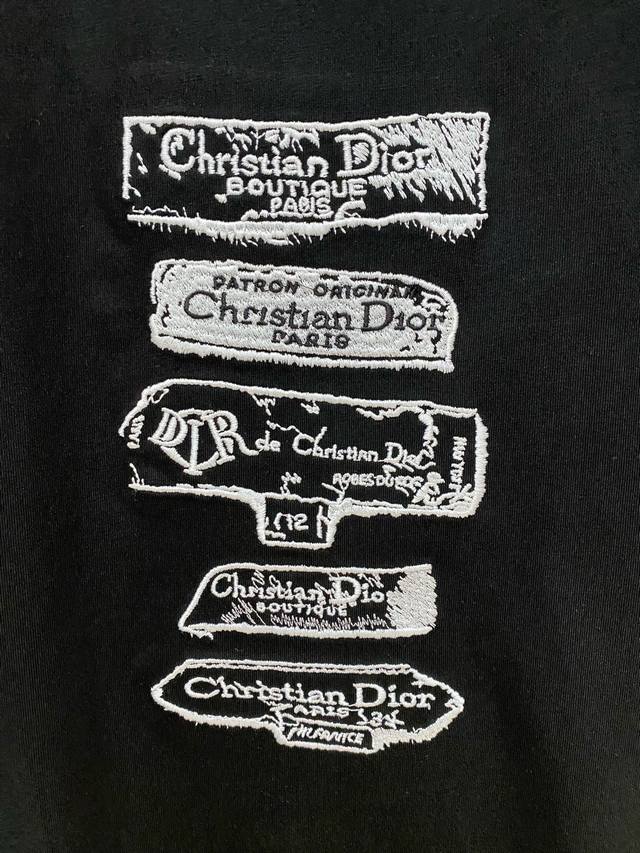 Christian Dior
BOUTIQUE
PARIS
PATRON ORIGINAL
Christian Dior
PARIS
PARIS
DIOR de Christian Dior
112
Christian Dio
BOUTIQUE
Christian Dior
PARIS